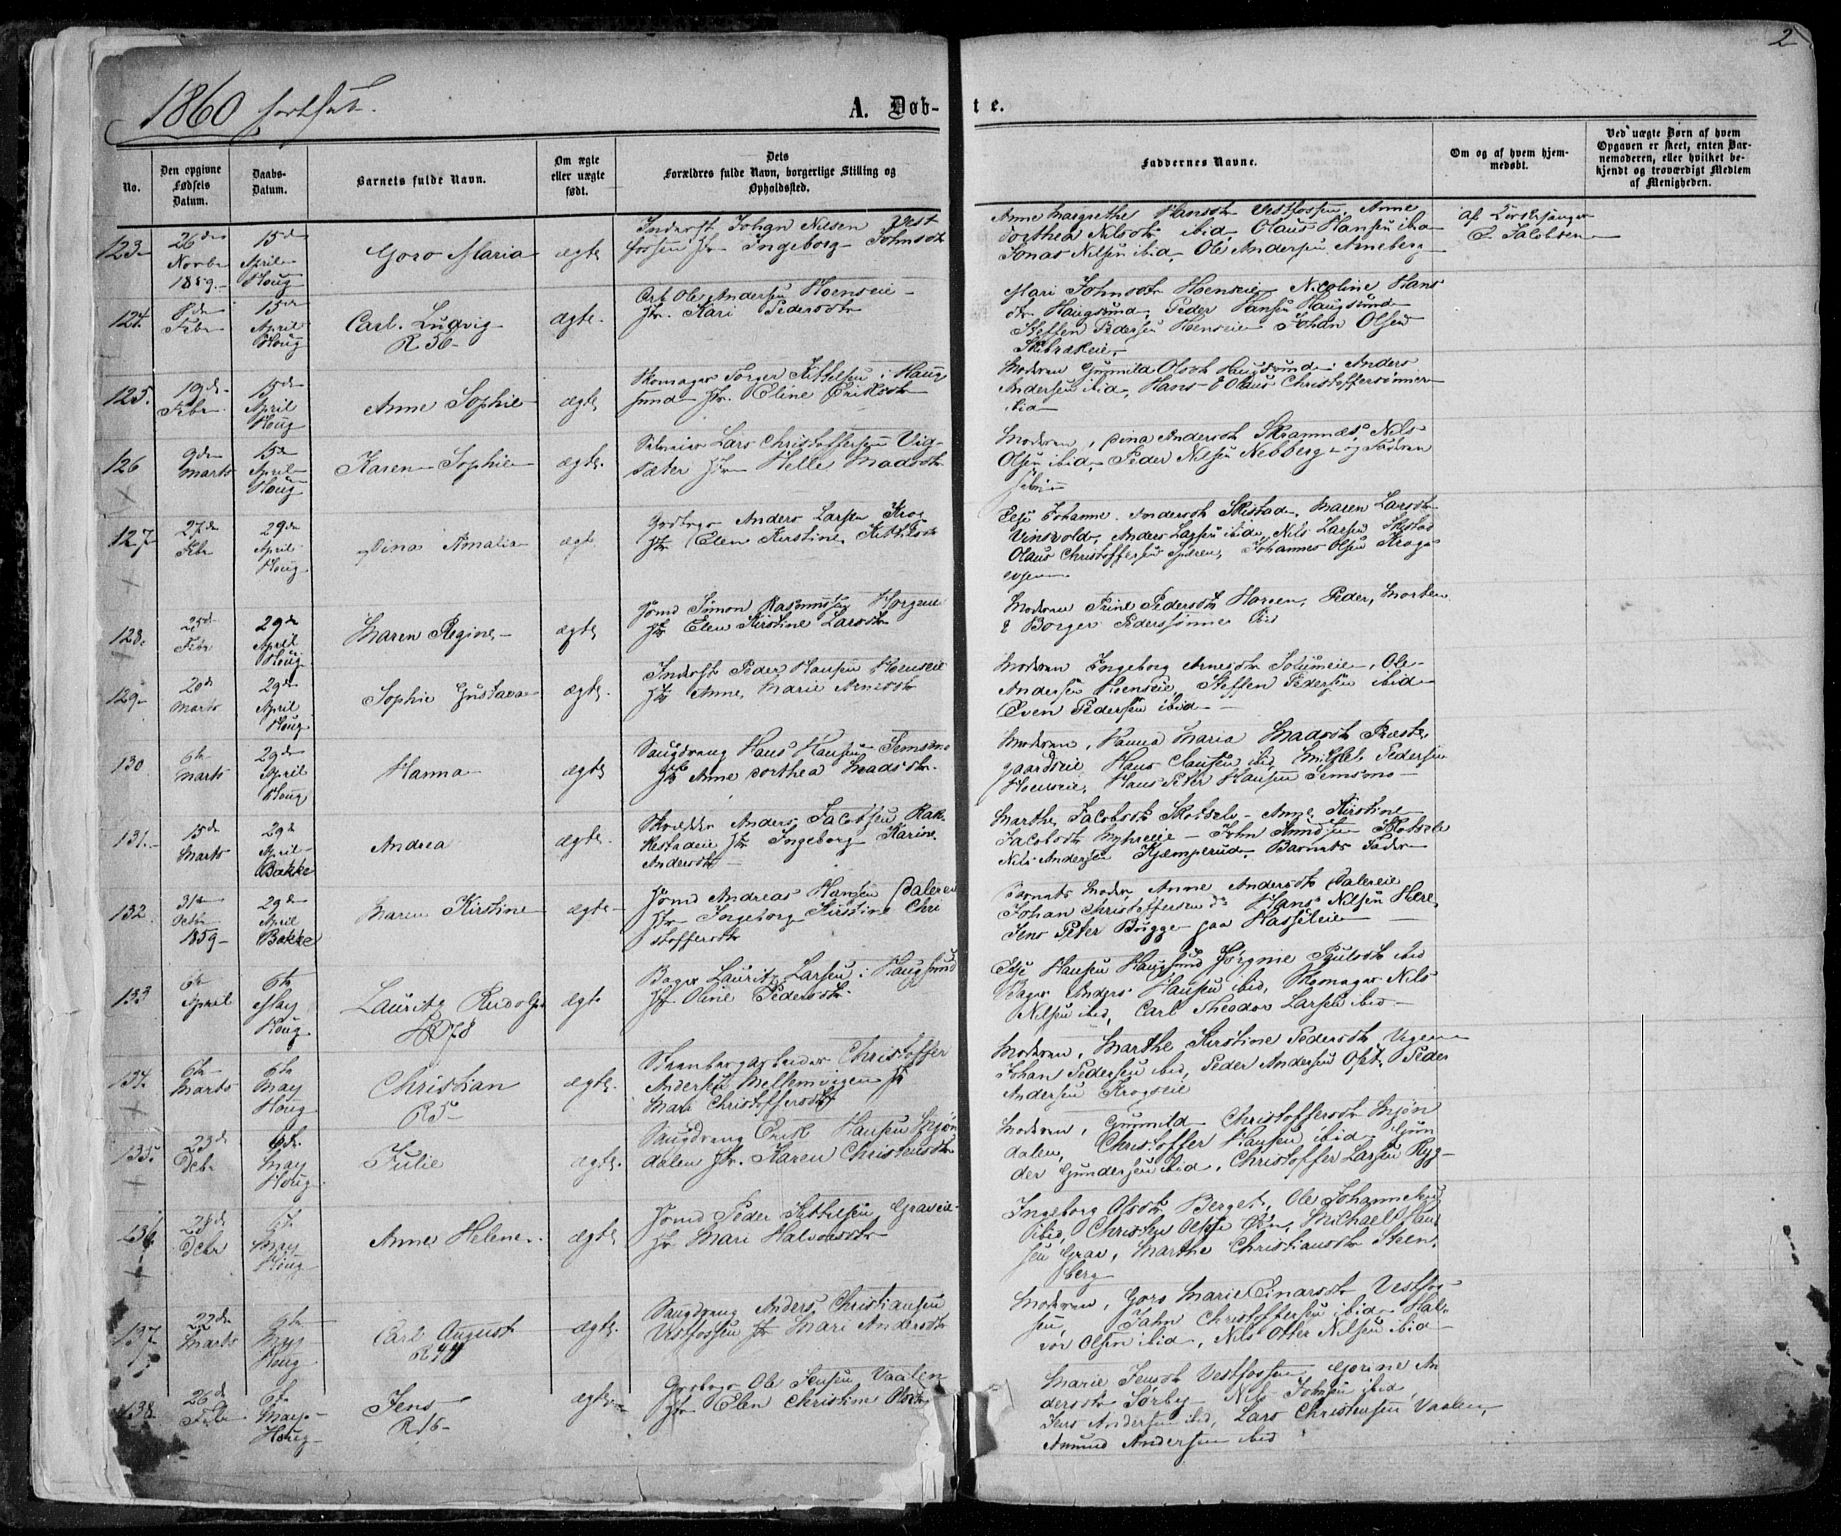 2
1860 fortsat.
A. Døb-te.
No.
Den opgivne Fødsels Datum.
Daabs-Datum.
Barnets fulde Navn.
Om ægte eller uægte født.
Dets Forældres fulde Navn, borgerlige Stilling og Opholdssted.
Faddernes Navne.
Om og af hvem hjemmedøbt.
Ved uægte Børn af hvem Opgaven er skeet, enten Barnemoderen, eller hvilket bekjendt og troværdigt Medlem af Menigheden.
123 26de Novbr 1859 15de April Houg Goro Maria ægte
Inderst Johan Nilsen Vestfossen Ingeborg Johnsdtr
Anne Margrethe Hansdtr Vestfossen, Anne
Dorthea Nilsdtr ibid Olaus Hansen ibid
Jonas Nilsen ibid, Ole Andersen Arneberg
Af Kirkesanger
Jacobsen
124. 8de Febr 15de April Houg Carl Ludvig R 56 ægte.
Ole Andersen Hoenseie
Kari Pedersdtr
Mari Johnsdtr Hoenseie Nicoline Hans
dtr Haugsund, Peder Hansen Haugsund
Steffen Pedersen Hoenseie Johan Olsen
125. 19de Febr. 15de April Houg Anne Sophie ægte
Skomager Torger Kittelsen i Haug
sund Eline Eriksdtr
Moderen Gunnild Olsdtr Haugsund, Anders
Andersen ibid, Hans & Olaus Christoffersønner
ibid
126 9de Marts 15de April Houg Karen Sophie ægte.
Lars Christoffersen Vig
sæter Helle Madsdtr
Moderen, Dina Andersdtr Skramnæs, Nils
Olsen ibid, Peder Nilsen Nebberg og Faderen
127 27de Febr 29de April Houg Dina Amalia ægte
Anders Larsen Krog
Elen Kirstine Kittilsdtr
Else Johanne Andersdtr Skistad, Maren Larsdtr
Vinsvold, Anders Larsen ibid, Nils Larsen Skistad
Olaus Christoffersen Johannes Olsen Krogs
128. 25de Febr 29de April Houg Maren Regine ægte
Simon Rasmussen Horgen
Elen Kirstine Larsdtr
Moderen Trine Pedersdtr Horgen, Peder, Morten
& Borger Pederssønner
129 20de Marts 29de April Houg Sophie Gustava ægte
Inderst Peder Hansen Hoenseie
Anne Marie Arnesdtr
Moderen Ingeborg Arnesdtr Solumeie, Ole
Andersen Hoenseie, Steffen Pedersen ibid
Even Pedersen ibid
130 6te Marts 29de April Houg Hanna ægte
Saugdreng Hans Hansen Temsmo
Anne Dorthea Madsdtr.
Moderen, Hanna Maria Madsdtr Præste
gaardseie Hans Clausen ibid, Michel Pedersen
Hoenseie, Hans Peter Hansen Temsmo
131. 15de Marts 29de April Bakke Andrea ægte
Skrædder Anders Jacobsen Rak
kestadeie Ingeborg Karine
Andersdtr
Marthe Jacobsdtr Skotsele Anne Kirstine
Jacobsdtr Myhreeie John Skotsele
Nils Andersen Kjæmperud, Barnets Fader
132 1859 29de April Bakke Maren Kirstine ægte
Andreas Hansen Daleneie
Ingeborg Kirstine Chri
stoffersdtr
Barnets Moder, Anne Andersdtr Daleneie
Johan Christoffersen Hans Nilsen Here
Jens Peter Brygge paa Hasseleie
133 6te April 6te May Houg Lauritz Rudolf ægte
Bager Lauritz Larsen i Haugsund
Oline Pedersdtr.
Else Hansen Haugsund Jørgine Paulsdtr ibid
Bager Anders Hansen ibid, Skomager Nils
Nilsen ibid, Carl Theodor Larsen ibid
134. 6te Marts 6te May Houg Christian R 5 ægte.
Christoffer
Andersen Mellemvigen
Mari Christoffersdtr
Moderen, Marthe Kirstine Pedersdtr Vigen
Johan Pedersen ibid, Peder Andersen Peder
Andersen Krogseie
135. 23de Debr 6te May Houg Julie ægte.
Saugdreng Erik Hansen Mjøn
dalen. Karen Christensdtr
Moderen, Gunnild Christoffersdtr Mjøn
dalen, Christoffer Hansen ibid Gun
der Gundersen ibid, Christoffer Larsen Ryg
136 Debr 6te May Houg Anne Helene ægte
Peder Kittelsen Graveie
Mari Halvorsdtr
Ingeborg Olsdtr Berget, Ole Johannesen
ibid, Christen Olsen Michael Han
sen Grav, Marthe Christiansdtr Steen
berg
137 22de Marts 6te May Houg Carl August R 44 ægte.
Saugdreng Anders Christiansen
Vestfossen Mari Andersdtr
Moderen, Goro Marie Einarsdtr Vestfos
sen, John Christoffersen ibid Hal
vor Olsen ibid, Nils Otter Nilsen ibid
138 26de Febr 6te May Houg Jens R 16 ægte
Ole Jensen Vaalen
Elen Christine Olsdtr
Marie Jensdtr Vestfossen Gorine An
dersdtr Sørby Nils Johnsen ibid
Jens Andersen ibid, Lars Christensen Vaalen,
Amund Andersen ibid